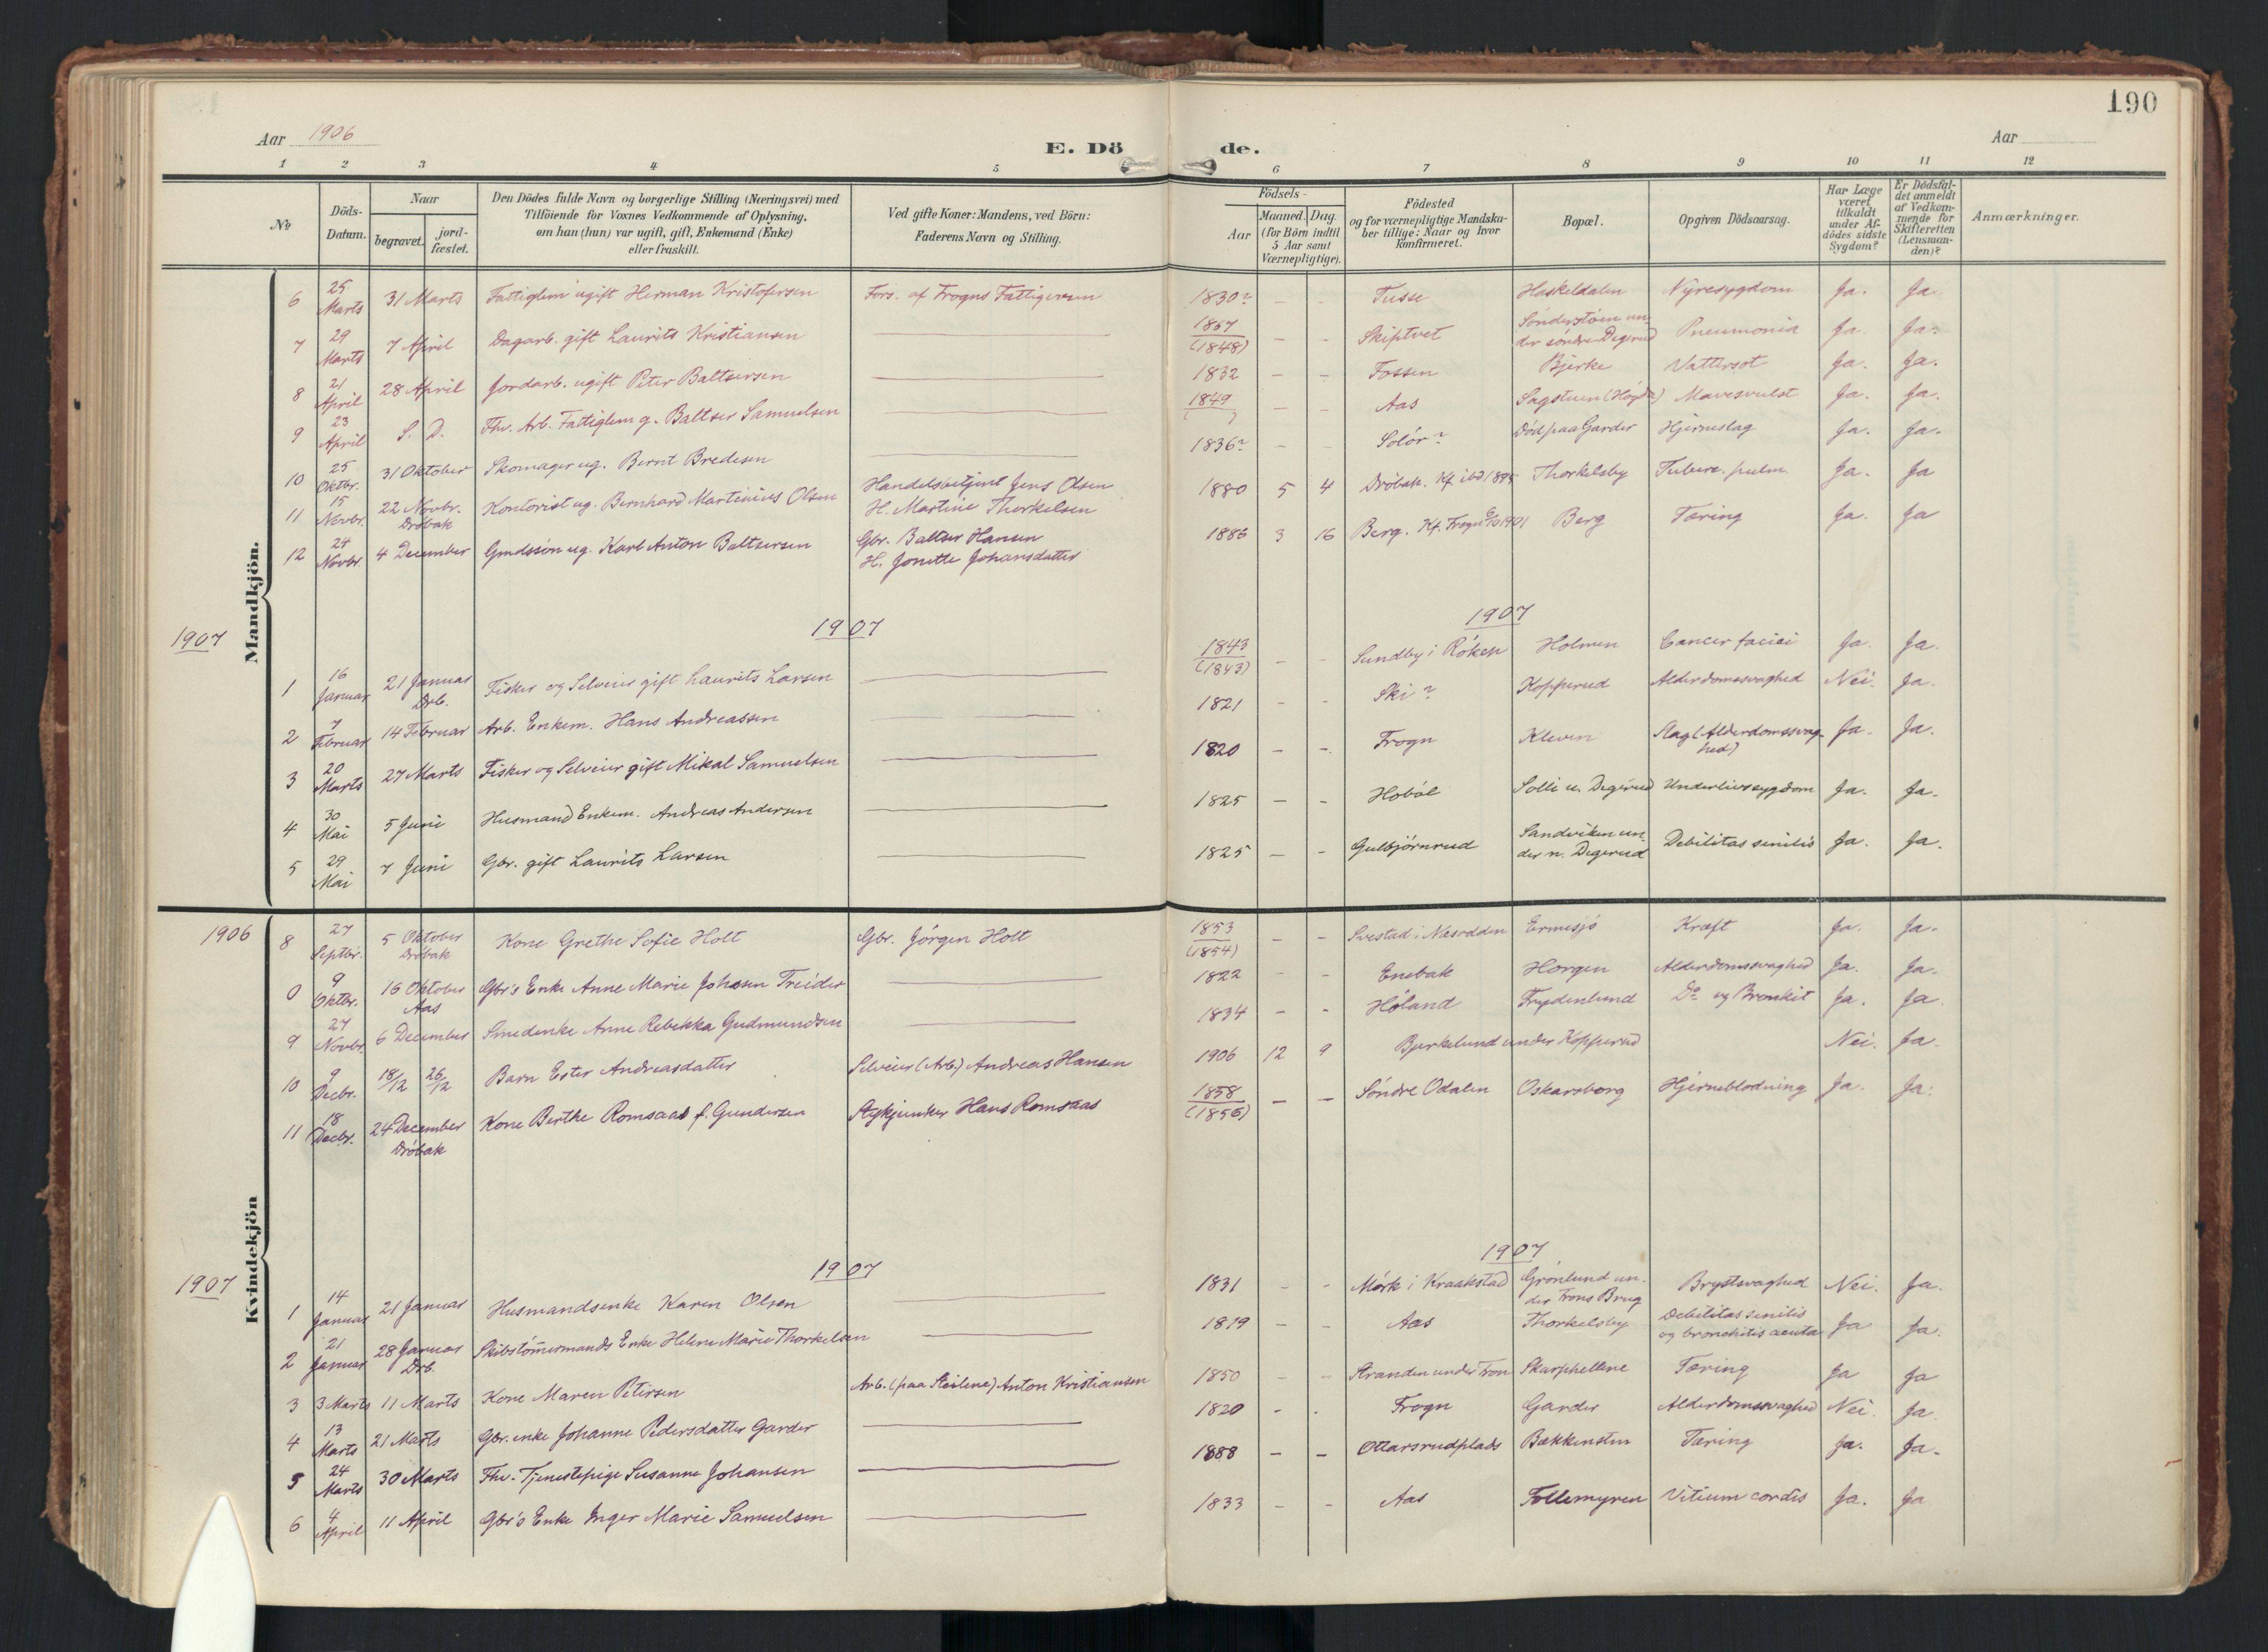 190
Aar 1906
E. Dö de.
Aar
1 2 3 4 5 6 7 8 9 10 11 12
№
Döds-Datum.
Naar
begravet.
jord-fæstet.
Den Dödes fulde Navn og borgerlige Stilling (Næringsvei) med
Tilföiende for Voxnes Vedkommende af Oplysning,
om han (hun) var ugift, gift, Enkemand (Enke)
eller fraskilt.
Ved gifte Koner: Mandens, ved Börn:
Faderens Navn og Stilling.
Födsels-
Aar
Maaned. Dag.
(for Börn indtil
5 Aar samt
Værnepligtige).
Födested
og for værnepligtige Mandska-
ber tillige: Naar og hvor
Konfirmeret.
Bopæl.
Opgiven Dödsaarsag.
Har Læge
været
tilkaldt
under Af-
dödes sidste
Sygdom?
Er Dödsfal-
det anmeldt
af Vedkom-
mende for
Skifteretten
(Lensman-
den)?
Anmærkninger.
Mandkjön.
6 25 Marts 31 Marts Fattiglem ugift Herman Kristofersen Fors. af Frogns Fattigvæsen 1830? – – Tusse Haskeldalen Nyresygdom Ja. Ja.
7 29 Marts 7 April Dagarb. gift Laurits Kristiansen 1857 (1848) – – Skiptvet Sönderstöen un-
der söndre Degerud Pneumonia Ja. Ja.
8 21 April 28 April Jordarb. ugift Peter Baltsersen 1832 – – Fossen Bjerke Vattersot Ja. Ja.
9 23 April S. D. Fhv. Arb. Fattiglem g. Baltser Samuelsen 1849 – – Aas Sagstuen (Høgda) Mavesvulst Ja. Ja.
10 25 Oktbr. 31 Oktober Skomager ug. Bernt Bredesen 1836? – – Solör? Död paa Garder Hjerneslag Ja. Ja.
11 15 Novbr. 22 Novbr. Dröbak Kontorist ug. Bernhard Martinius Olsen Handelsbetjent Jens Olsen
H. Martine Thorkelsen 1880 5 4 Dröbak. Kf. ibd 1895 Thorkelsby Tuberc. pulm. Ja. Ja
12 24 Novbr. 4 December Gmdssön ug. Karl Anton Baltsersen Gbr. Baltser Hansen
H. Jonette Johansdatter 1886 3 16 Berg. Kf. Frogn 1901 Berg Tæring Ja. Ja
1907 1907 1907
1 16 Januar 21 Januar Drb. Fisker og Selveier gift Laurits Larsen 1843 (1843) – – Sundby i Röken Holmen Cancer faciei Ja. Ja.
2 7 Februar 14 Februar Arb. Enkem. Hans Andreassen 1821 – – Ski? Kopperud Alderdomssvaghed Nei. Ja.
3 20 Marts 27 Marts Fisker og Selveier gift Mikal Samuelsen 1820 – – Frogn Kleven Slag (Alderdomssvag-
hed) Ja. Ja.
4 30 Mai 5 Juni Husmand Enkem. Andreas Andersen 1825 – – Hoböl Solli u. Degerud Underlivssygdom Ja. Ja.
5 29 Mai 7 Juni Gbr. gift Laurits Larsen 1825 – – Gulbjörnrud Sandviken un-
der n. Degerud Debilitas senilis Ja. Ja.
Kvindekjön
1906
8 27 Septbr. 5 Oktober Dröbak Kone Grethe Sofie Holt Gbr. Jörgen Holt 1853 (1854) – – Svestad i Næsodden Ermesjö Kræft Ja. Ja.
0 9 Oktbr. 16 Oktober Aas Gbr's Enke Anne Marie Johnsen Treider 1822 – – Enebak Horgen Alderdomssvaghed Ja. Ja.
9 27 Novbr. 6 December Smedenke Anne Rebekka Gudmundsen 1834 – – Höland Frydenlund Do og Bronkit Ja. Ja.
10 9 Decbr. 18/12 26/12 Barn Ester Andreasdatter Selveier (Arb.) Andreas Hansen 1906 12 9 Bjerkelund under Kopperud Nei. Ja.
11 18 Decbr. 24 December Dröbak Kone Berthe Romsaas f. Gundersen Stykjunker Hans Romsaas 1858 (1856) – – Söndre Odalen Oskarsborg Hjerneblodning Ja. Ja.
1907 1907 1907
1 14 Januar 21 Januar Husmandsenke Karen Olsen 1831 – – Mörk i Kraakstad Grönlund un-
der Frons Brug Brystsvaghed Nei. Ja.
2 21 Januar 28 Januar Drb. Skibstömmermands Enke Helene Marie Thorkelsen 1819 – – Aas Thorkelsby Debilitas senilis
og bronchitis acuta Ja Ja.
3 3 Marts 11 Marts Kone Maren Petersen Arb. (paa Steilene) Anton Kristiansen 1850 – – Stranden under Fron Skarphellene Tæring Ja Ja
4 13 Marts 21 Marts Gbr. enke Johanne Pedersdatter Garder 1820 – – Frogn Garder Alderdomssvaghed Nei. Ja.
5 24 Marts 30 Marts Fhv. Tjenestepige Susanne Johansen 1888 – – Ottarsrudplads Bækkensten Tæring Ja. Ja.
6 4 April 11 April Gbr's Enke Inger Marie Samuelsen 1833 – – Aas Follemyren Vitium cordis Ja. Ja